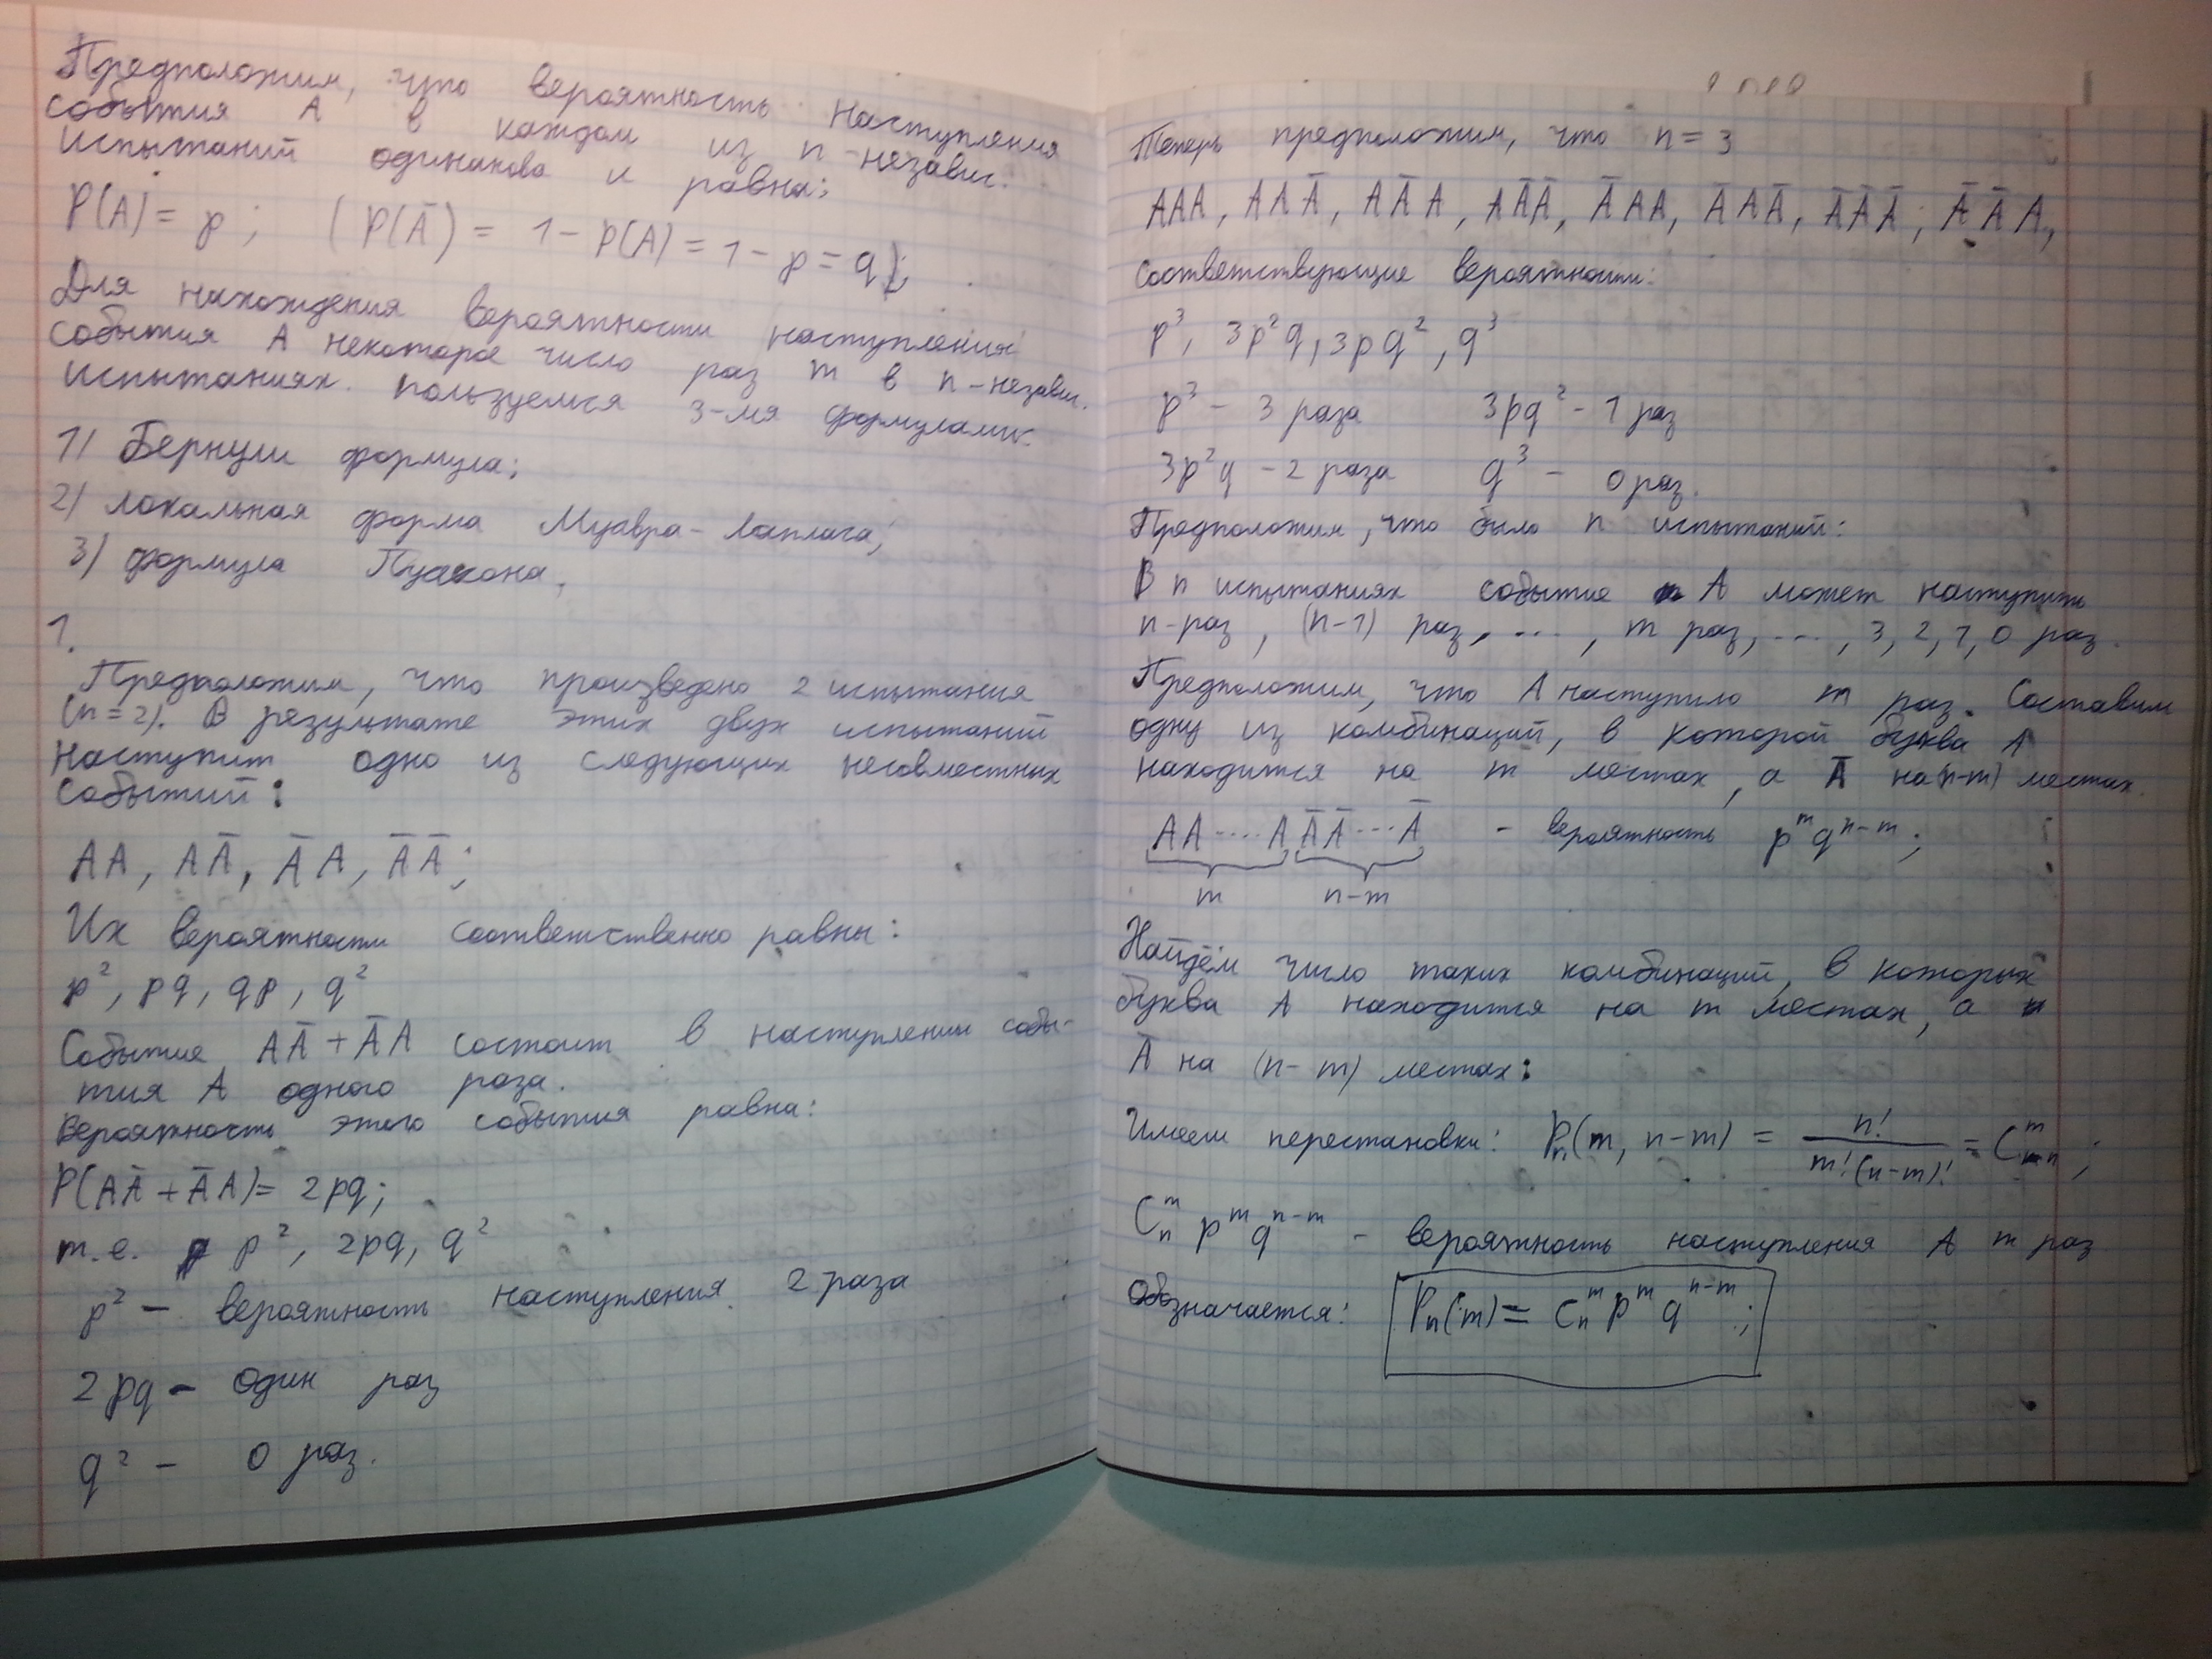 Предположим, что вероятность наступления
события A в каждом из n-независ.
испытаний одинакова и равна:
P(A) = p; (P(Ā) = 1 - P(A) = 1 - p = q);
Для нахождения вероятности наступления
события A некоторое число раз m в n-независ.
испытаниях. пользуемся 3-мя формулами:
1) Бернули формула;
2) локальная форма Муавра-Лапласа;
3) формула Пуасона;
1.
Предположим, что произведено 2 испытания
(n=2). В результате этих двух испытаний
наступит одно из следующих несовместных
событий:
AA, AĀ, ĀA, ĀĀ;
Их вероятности соответственно равны:
p², pq, qp, q²
Событие AĀ + ĀA состоит в наступлении собы-
тия A одного раза.
Вероятность этого события равна:
P(AĀ + ĀA) = 2pq;
т.е. p², 2pq, q²
p² - вероятность наступления 2 раза
2pq - один раз
q² - 0 раз.
Теперь предположим, что n = 3
AAA, AAĀ, AĀA, AĀĀ, ĀAA, ĀAĀ, ĀĀĀ; ĀĀA,
Соответствующие вероятности:
p³, 3p²q, 3pq², q³
p³ - 3 раза 3pq² - 1 раз
3p²q - 2 раза q³ - 0 раз.
Предположим, что было n испытаний:
В n испытаниях событие A может наступить
n-раз, (n-1) раз, ..., m раз, ..., 3, 2, 1, 0 раз.
Предположим, что A наступило m раз. Составим
одну из комбинаций, в которой буква A
находится на m местах, а Ā на (n-m) местах.
AA....A ĀĀ...Ā - вероятность pᵐqⁿ⁻ᵐ;
m n-m
Найдём число таких комбинаций, в которых
буква A находится на m местах, а
Ā на (n-m) местах:
Имеем перестановки: Pₙ(m, n-m) = n!/(m!(n-m)!) = Cₙᵐ;
Cₙᵐ pᵐ qⁿ⁻ᵐ - вероятность наступления A m раз
Обозначается: Pₙ(m) = Cₙᵐ pᵐ qⁿ⁻ᵐ;